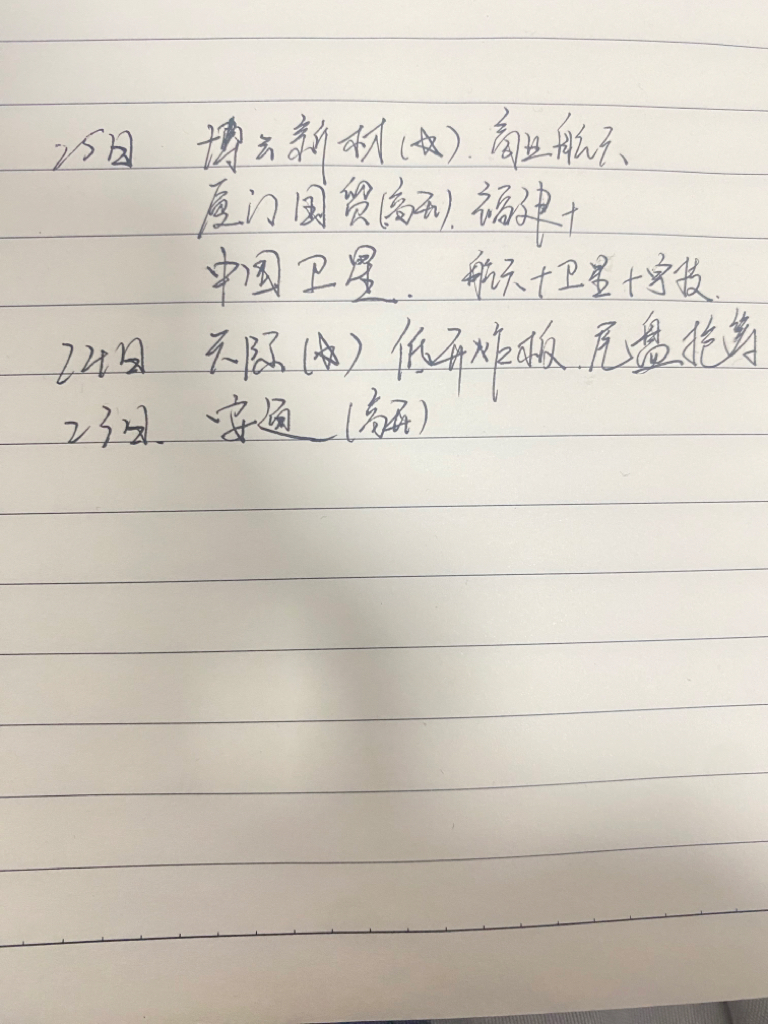 25日 博云新材(成). 商业航天、
厦门国贸(高开). 福建+
中国卫星. 航天+卫星+字技.
24日 天际(成) 低开炸板. 尾盘抢筹
23日. 安通(高开)